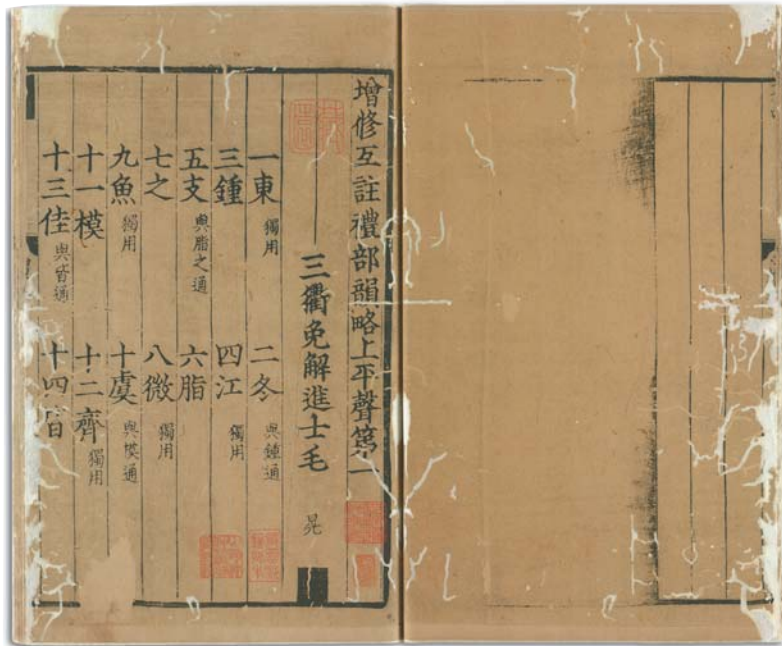 增修互註禮部韻略上平聲第一
三衢免解進士毛 晃
一東 獨用 二冬 與鍾通
三鍾 四江 獨用
五支 與脂之通 六脂
七之 八微 獨用
九魚 獨用 十虞 與模通
十一模 十二齊 獨用
十三佳 與皆通 十四皆